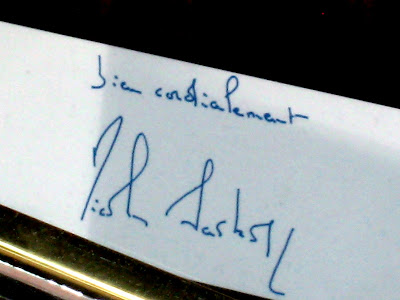 bien cordialement
Nicolas Sarkozy